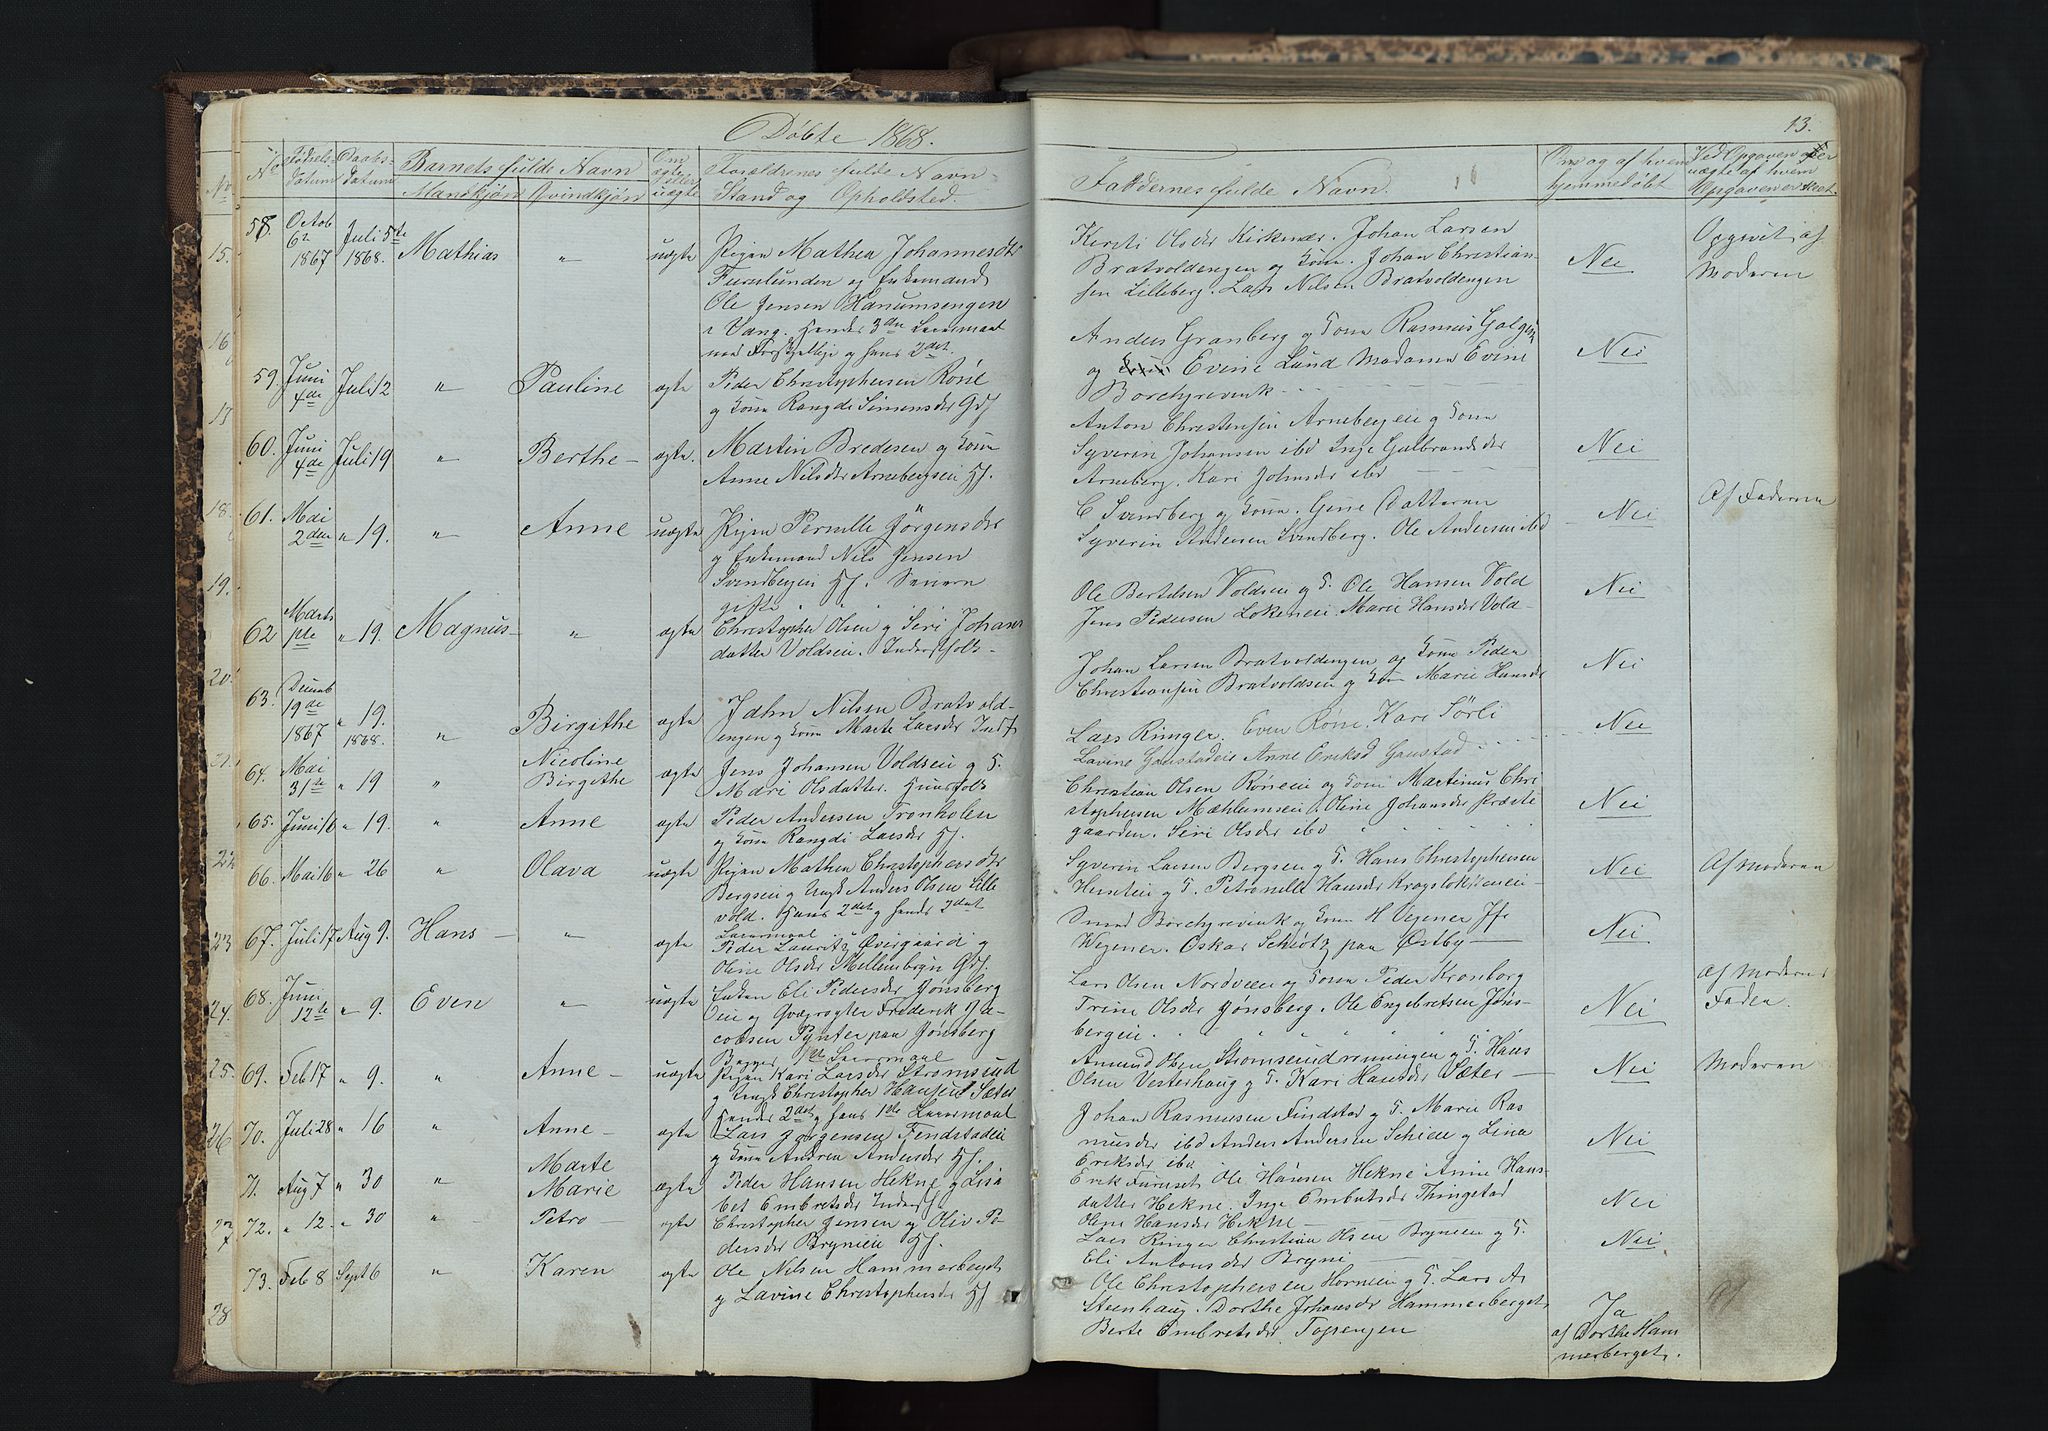 Döbte 1868.
13.
No
Fødsels-
datum
Daabs-
datum
Barnets fulde Navn
Mandkjøn Qvindkjøn
Om
ægte
eller
uægte
Forældrenes fulde Navn
Stand og Opholdsted.
Faddernes fulde Navn.
Om og af hvem
hjemmedøbt
Ved Opgaven
uægte af hvem
Opgaven er skeet.
58. Octob
6te
1867 Juli 5te
1868. Mathias " uægte Pigen Mathea Johannesdtr
Furulunden og Enkemand
Ole Jensen Hanumsengen
i Vang. Hendes 3die Leiermaal
med Forskjellige og hans 2det.
Kersti Olsdr Kirkenær. Johan Larsen
Bratvoldengen og Kone. Johan Christian-
sen Lilleberg. Lars Nilsen Bratvoldengen
Nei
Opgivet af
Moderen
59. Juni
4de Juli 12 " Pauline ægte Peder Christophersen Røne
og Kone Rangdi Simensdr Gdf
Anders Granberg og Kone Rasmus
og Evine Lund Madame Evine
Borchgrevink
Nei
60. Juni
4de Juli 19 " Berthe - ægte. Martin Bredesen og Kone
Anne Nilsdr Arnebergseie Hf.
Anton Christensen Arnebergeie og Kone
Syverin Johansen ibd Inge Gulbrandsdr
Arneberg. Kari Johnsdr ibd
Nei
61. Mai
2den " 19. " Anne uægte Pigen Pernille Jörgensdr
og Enkemand Nils Jensen
Svendbergen Hf. Senere
gifte
C Svendberg og Kone. Gine (Datteren
Syverin Andersen Svendberg. Ole Andersen ibd
Nei
Af Faderen
62 Marts
" 19. Magnus - " ægte Christopher Olsen og Siri Johans
datter Voldseie. Inderstfolk -
Ole Bertelsen Voldseie og K. Ole Hansen Vold
Jens Pedersen Lökeneie. Marie Hansdr Vold -
Nei
63. Decemb
19de
1867 " 19.
1868. " Birgithe ægte John Nilsen Bratvold-
engen og Kone Marte Larsdr Indf
Johan Larsen Bratvoldengen og Kone Peder
Christiansen Bratvoldseie og Kone Marie Hansdr
Nei
64. Mai
31te " 19 " Nicoline
Birgithe ægte Jens Johansen Voldseie og K.
Mari Olsdatter. Huusfolk
Lars Ringer. Even Röne. Kari Sörli
Lavine Gaustadeie Anne Eriksd Gaustad
Nei
65. Juni 16 " 19. " Anne ægte Peder Andersen Tronholen
og Kone Rangdi Larsdr Hf.
Christian Olsen Röneeie og Kone Martinus Chri
stophersen Mæhlumseie. Oline Johansdr Præste
gaarden. Siri Olsdr ibd
Nei
66. Mai 16 " 26 " Olava uægte Pigen Mathea Christophersdr
Bergseie og Ungk Anders Olsen Lille
vold. Hans 2det og hendes 2det
Leiermaal
Syverin Larsen Bergseie og K. Hans Christophersen
og K. Petronille Hansdr
Nei
Af Moderen
67. Juli 17 Aug 9. Hans - " ægte Peder Lauritz Övergaard og
Oline Olsdr Mellembyn Gdf.
Smed Borchgrevink og Kone H Vegener Jfr
Wegener. Oskar Schiötz paa Østby -
Nei
68. Juni
12te " 9. Even " uægte Enken Eli Pedersdr Jønsberg
eie og Qvægrogter Frederik Ja-
cobsen Pynter paa Jønsberg
Begges 1ste Leiermaal
Lars Olsen Nordveien og Kone Peder Kronborg
Trine Olsdr Jønsberg. Ole Engebretsen Jøns-
bergeie.
Nei
Af Moderen
Faden.
69. Feb 17 " 9. " Anne - uægte Pigen Kari Larsdr Strømsrud
og Ungk Christopher Hansen Sæter
Hendes 2det og hans 1ste Leiermaal
Amund Olsen Strömsrudrønningen og K. Hans
Olsen Vesterhaug og K. Kari Hansdr Sæter -
Nei
Moderen
70. Juli 28 " 16 " Anne - ægte Lars Jørgensen Findstadeie
og Kone Andrea Andersdr Hf.
Johan Rasmusen Findstad og K. Marie Ras
musdr ibd Anders Andersen Schieie og Lina
Eriksdr ibd
Nei
71. Aug 7 " 30 " Marte
Marie ægte Peder Hansen Hekne og Lisa
bet Embretsdr Inderstf
Erik Furuset Ole Hansen Hekne Anne Hans-
datter Hekne. Inge Embretsdr Thingstad
Oline Hansdr Hekne -
Nei
72. " 12. " 30 " Petra - ægte Christopher Jensen og Oliv Pe
dersdr Bryneeie Hf.
Lars Ringer Christian Olsen Bryneeie og K.
Eli Antonsdr Bryni
Nei
73. Feb 8 Sept 6 " Karen ægte Ole Nilsen Hammerberget
og Lavine Christophersdr Hf
Ole Christophersen Horneeie og K. Lars A
Steenhaug. Dorthe Johansdr Hammerberget
Berte Embretsdr Topengen
Ja
af Dorthe Ham
merberget.
15.
16
17
18.
19.
20.
21.
22
23
24.
25.
26
27
28